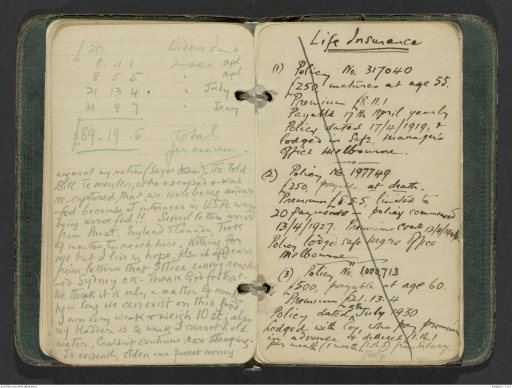 £20 Bidens Fund
8 11 1 Insce apl
8 5 5 " apl
21 13 4 . " July
31 9 7 Jany
£89.19.5 Total
per annum.
augment my ration (Says Azumi). Is told
Bill Te moulter, who escaped & was
re-captured, that we were being under
fed because Jap internees in U.S.A. were
being worse fed!! Several letters arrive
from Aust. England & Canada. Took
9 months to reach here. Nothing for
me but I live in hope. Also it appears
from letters that
Sydney OK - Thank God for that.
We think it is only a matter of
how long we can exist on this food
I am very weak & weigh 10 st; also
my bladder is so weak I cannot hold
water. Couldn't continue rice stamping.
Is evidently stolen our pocket money
Life Insurance
(1) Policy No. 317040
£250, matures at age 55.
Premium £8.11.1
Payable 17th April yearly
Policy dated 17/4/1919, &
lodged in Safe, Manager's
Office Melbourne.
"
(2) Policy No 197749
£250, payable at death.
Premium £8.5.5 limited to
20 payments - policy commenced
13/4/1927. Premiums cease 13/4/1946
Policy lodged safe Mgrs Office
Melbourne
"
(3) Policy No. 1000713
£500, payable at age 60.
Premium £21.13.4
Policy dated July 1930
Lodged with Coy, who pay premium
in advance & deduct
per month (1 month £1.16.5) from salary.